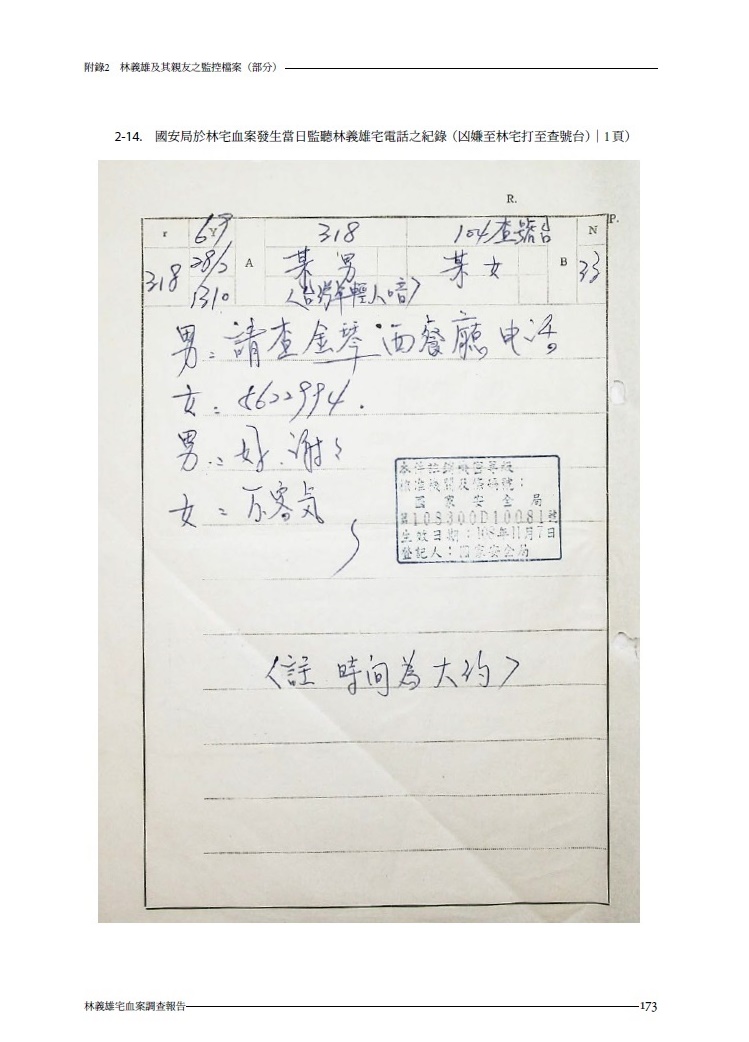 附錄2　林義雄及其親友之監控檔案（部分）
2-14.　國安局於林宅血案發生當日監聽林義雄宅電話之紀錄（凶嫌至林宅打至查號台）｜1頁）
R.
P.
r 69 Y 318 104查號台 N
318 28/2 A 某男 某女 B 33
1310 〈台灣年輕人口音〉
男：請查金琴西餐廳电话
女：5622994.
男：好.謝〻
女：不客気
本件註銷機密等級
核准機關及偩碼號：
國家安全局
第108300D10081號
生效日期：108年11月7日
登記人：國家安全局
〈註 時间為大約〉
林義雄宅血案調查報告
173